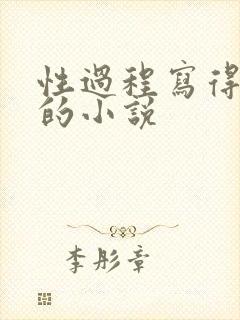 性過程寫得
的小説
李彤章